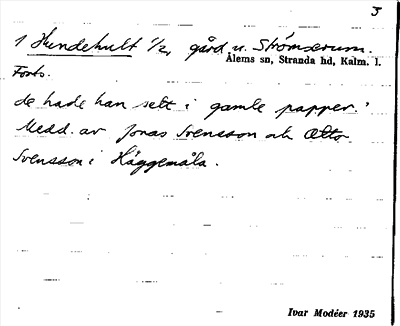 3
1 Hundehult 1/2, gård u. Strömserum.
Ålems sn, Stranda hd, Kalm. l.
Forts.
de hade han sett i gamle papper.'
Medd. av Jonas Svensson och Otto
Svensson i Häggemåla.
Ivar Modéer 1935